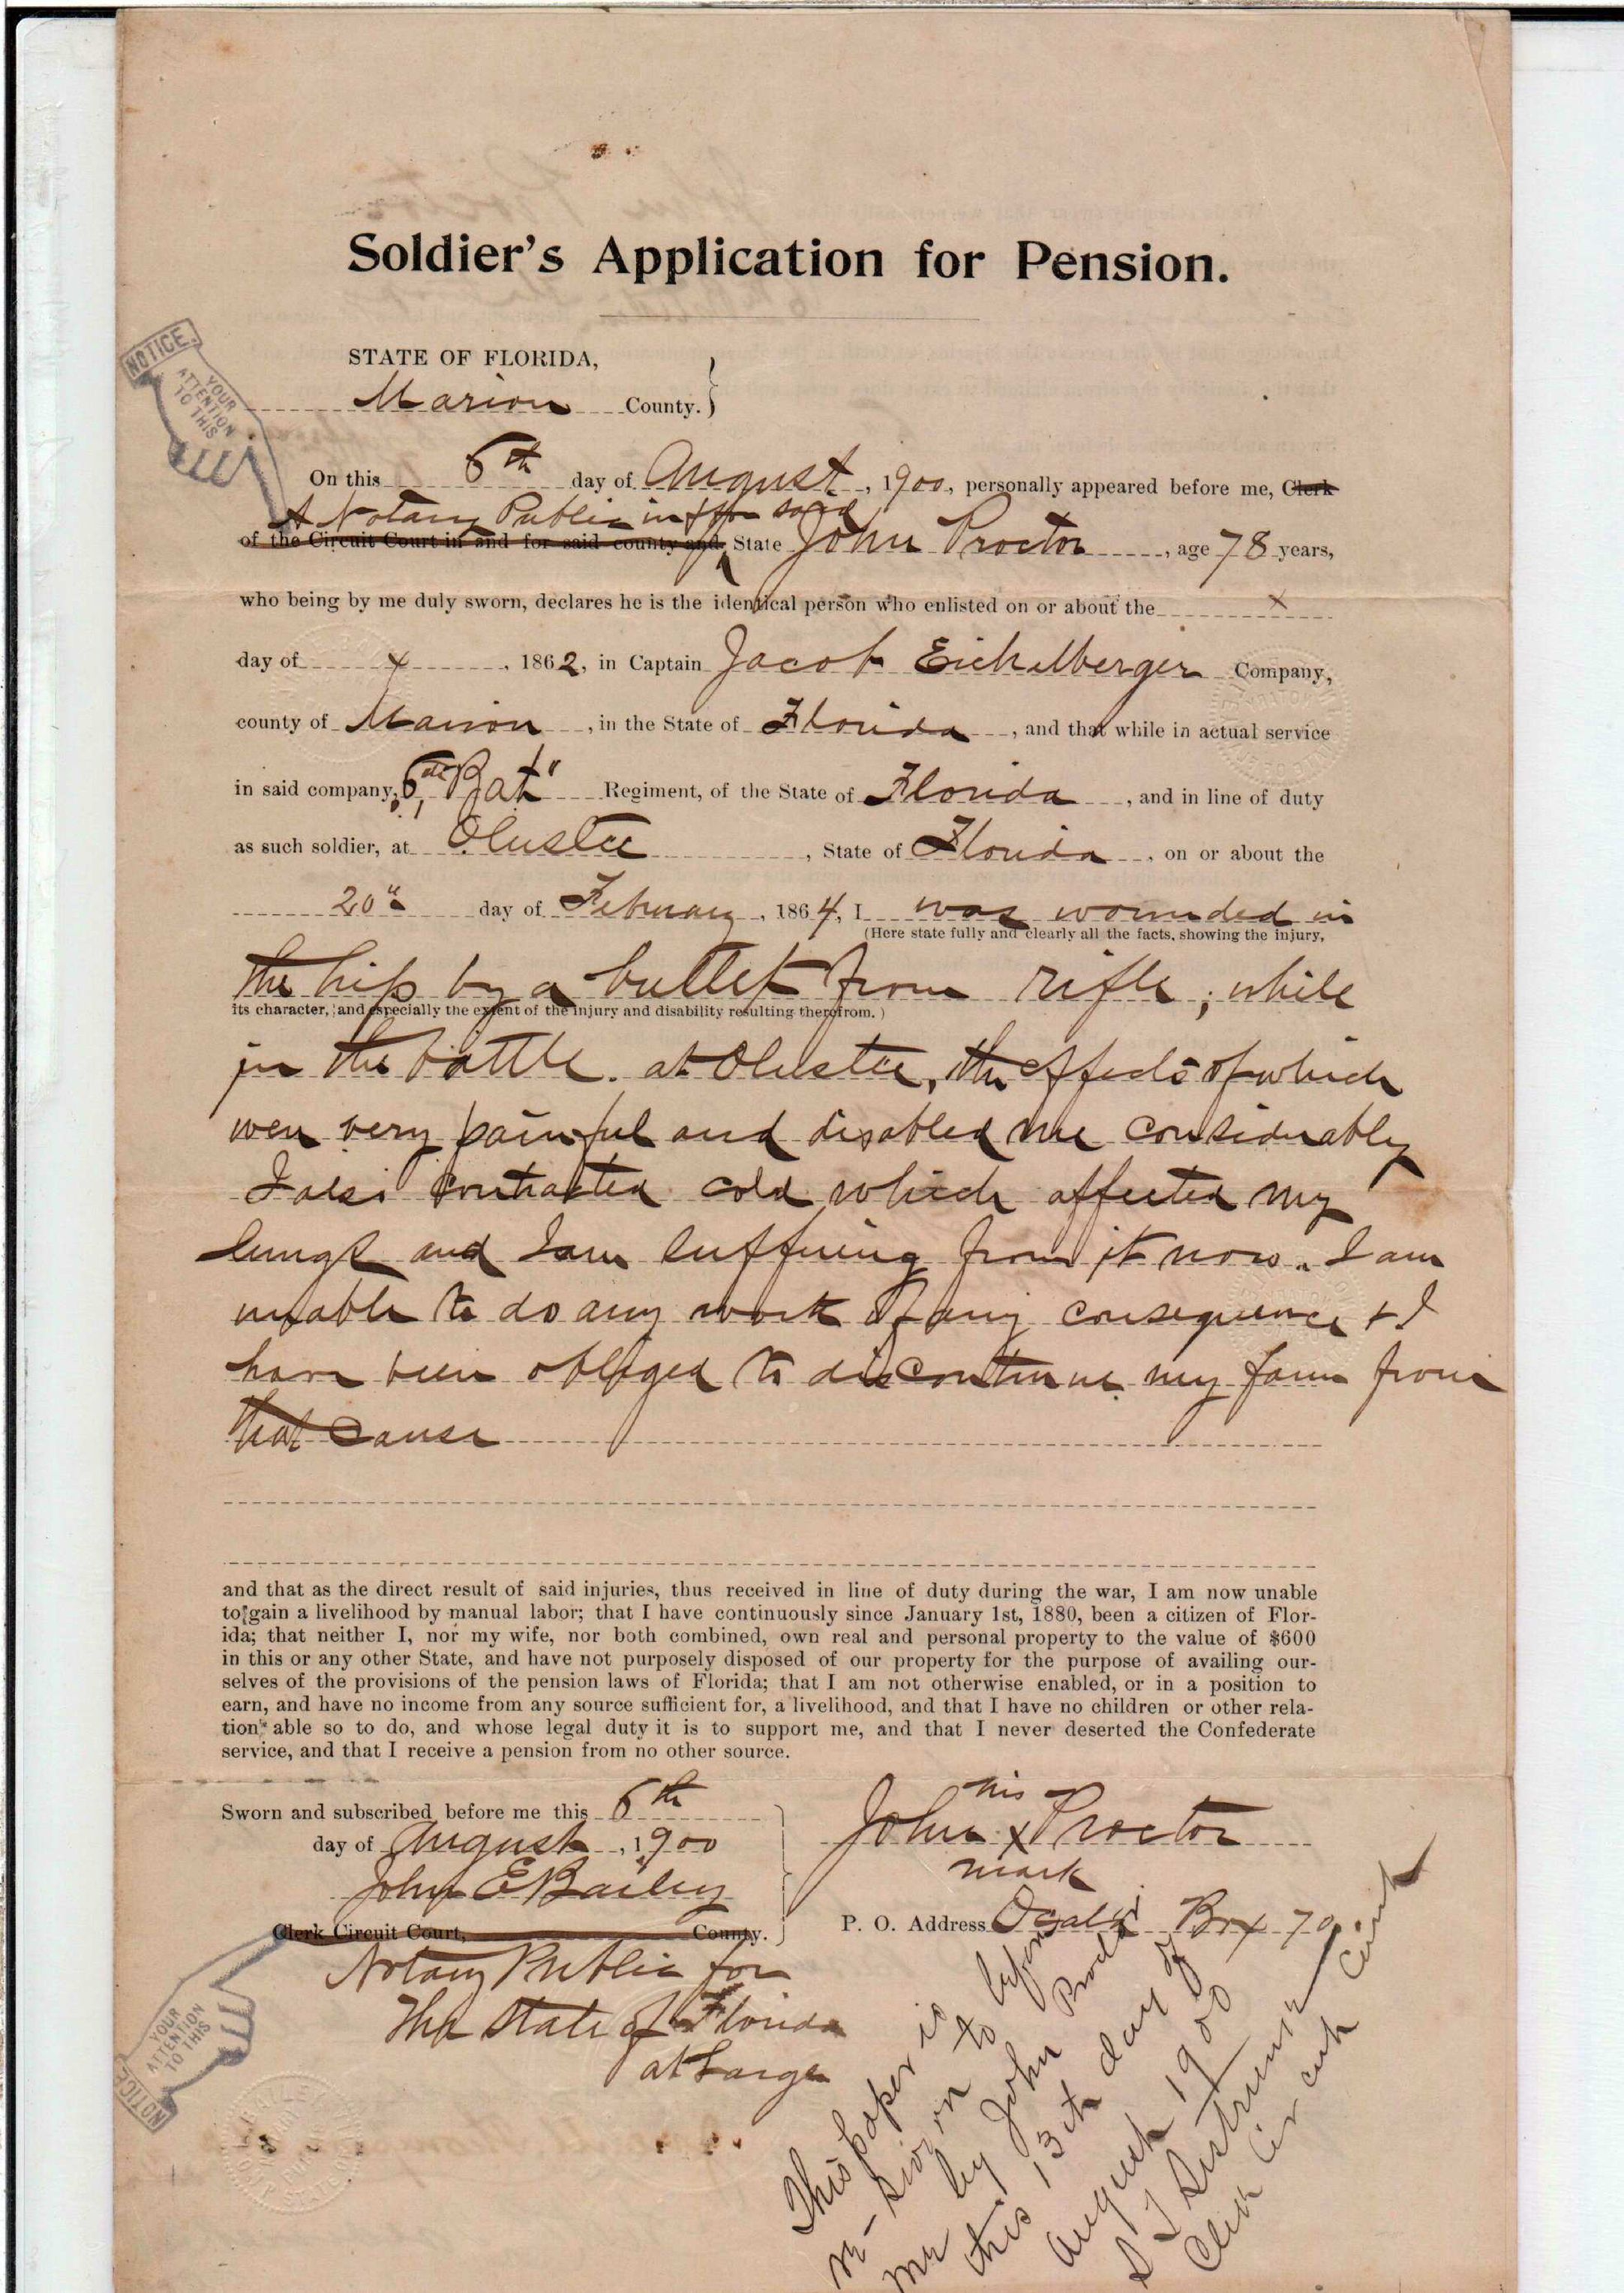 Soldier's Application for Pension.
STATE OF FLORIDA,
Marion County.
NOTICE
YOUR ATTENTION TO THIS
On this 6th day of August, 1900, personally appeared before me, Clerk
A Notary Public in & for said
of the Circuit Court in and for said county and State John Proctor, age 78 years,
who being by me duly sworn, declares he is the identical person who enlisted on or about the x
day of x, 1862, in Captain Jacob Eichelberger Company,
county of Marion, in the State of Florida, and that while in actual service
in said company, 6th Bat" Regiment, of the State of Florida, and in line of duty
as such soldier, at Olustee, State of Florida, on or about the
20" day of February, 1864, I was wounded in
(Here state fully and clearly all the facts, showing the injury,
the hip by a bullet from rifle, while
its character, and especially the extent of the injury and disability resulting therefrom.)
in the battle at Olustee, the effects of which
were very painful and disabled me considerably
I also contracted cold which affected my
lungs and I am suffering from it now. I am
unable to do any work of any consequence & I
have been obliged to discontinue my farm from
that cause
and that as the direct result of said injuries, thus received in line of duty during the war, I am now unable
to gain a livelihood by manual labor; that I have continuously since January 1st, 1880, been a citizen of Flor-
ida; that neither I, nor my wife, nor both combined, own real and personal property to the value of $600
in this or any other State, and have not purposely disposed of our property for the purpose of availing our-
selves of the provisions of the pension laws of Florida; that I am not otherwise enabled, or in a position to
earn, and have no income from any source sufficient for, a livelihood, and that I have no children or other rela-
tion able so to do, and whose legal duty it is to support me, and that I never deserted the Confederate
service, and that I receive a pension from no other source.
Sworn and subscribed before me this 6th
day of August, 1900
John E Bailey
Clerk Circuit Court, County.
Notary Public for
The State of Florida
at Large
his
John x Proctor
mark
P. O. Address Ocala Box 70
YOUR ATTENTION TO THIS
NOTICE
This paper is
re-sworn to before
me by John Proctor
this 13th day of
August 1900
Clerk Circuit Court